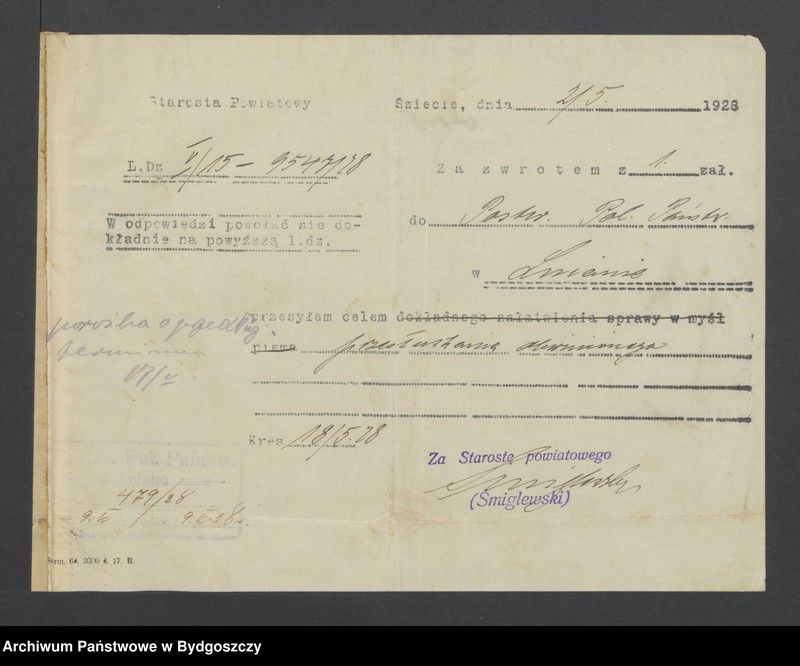 Starosta Powiatowy
Świecie, dnia 2/5. 1928
L.Dz. V/15 - 9547/28
Za zwrotem z 1. zał.
W odpowiedzi powołać sie do-
kładnie na powyższą l.dz.
do Poster. Pol. Państw.
w Lnianie
przesyłam celem dokładnego załatwienia sprawy w myśl
pisma przesłuchania
prośba o
terminu
17/V
Kres 18/5.28
Za Starostę powiatowego
(Śmiglewski)
Pol. Państw.
479/28
Form. 64. 2000 4. 17. B.
Archiwum Państwowe w Bydgoszczy